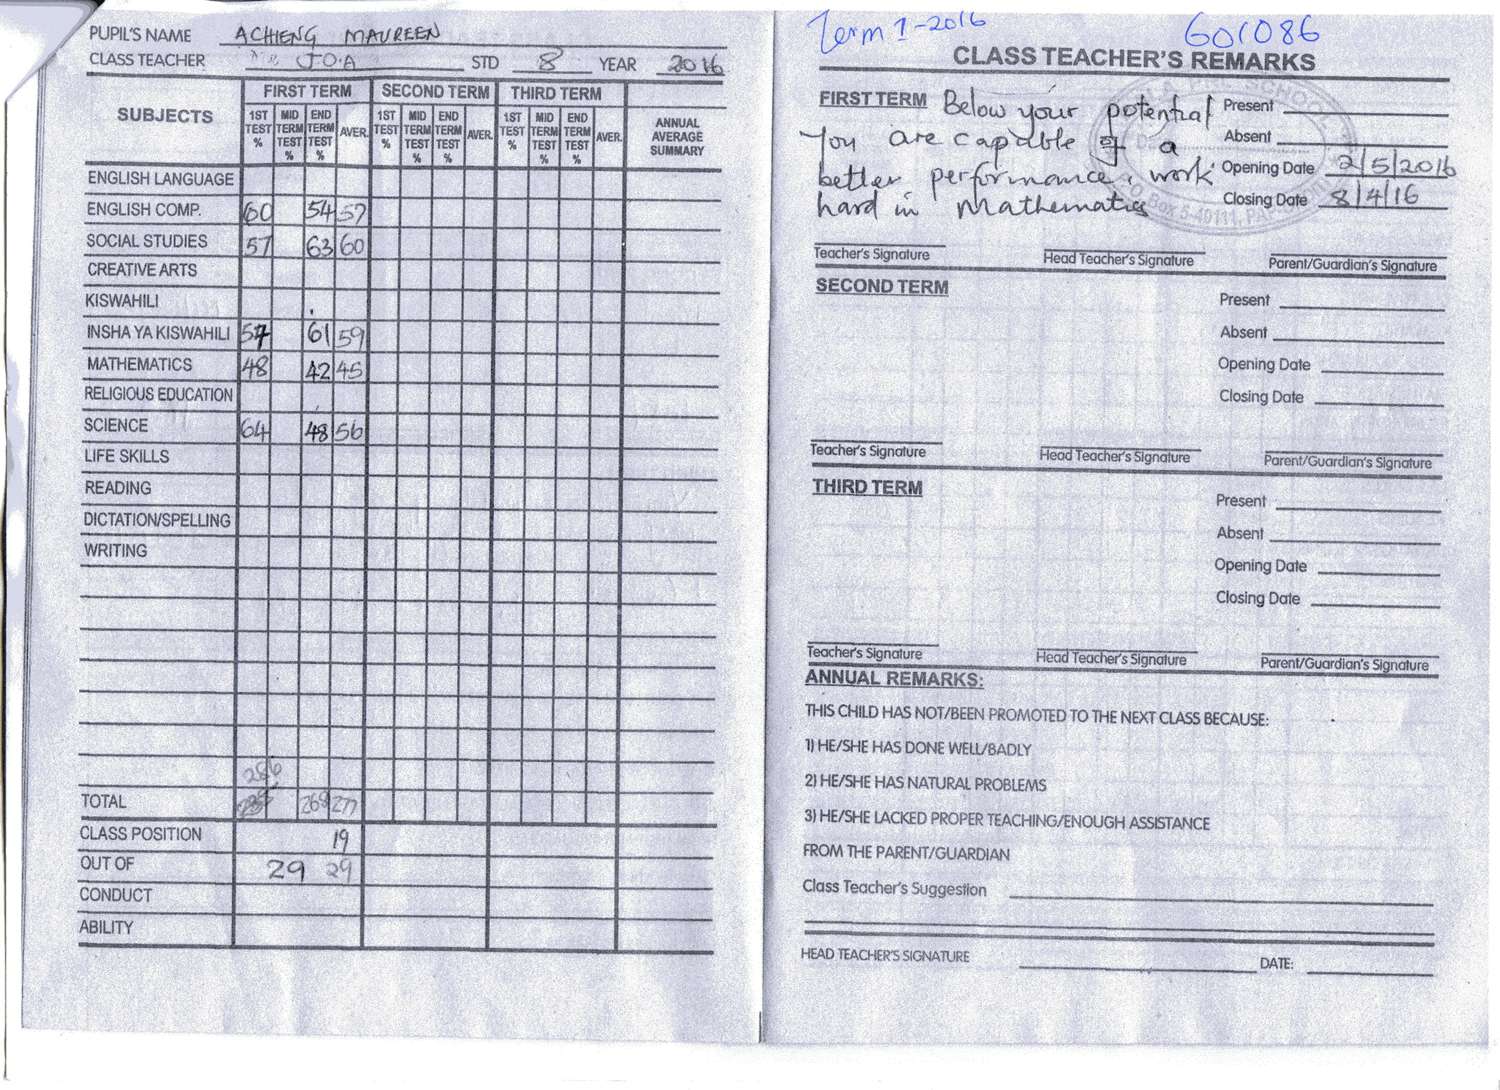 PUPIL'S NAME ACHIENG MAUREEN
CLASS TEACHER J.O.A STD 8 YEAR 2016
SUBJECTS FIRST TERM SECOND TERM THIRD TERM
1ST TEST % MID TERM TEST % END TERM TEST % AVER. 1ST TEST % MID TERM TEST % END TERM TEST % AVER. 1ST TEST % MID TERM TEST % END TERM TEST % AVER. ANNUAL AVERAGE SUMMARY
ENGLISH LANGUAGE
ENGLISH COMP. 60 54 57
SOCIAL STUDIES 57 63 60
CREATIVE ARTS
KISWAHILI
INSHA YA KISWAHILI 57 61 59
MATHEMATICS 48 42 45
RELIGIOUS EDUCATION
SCIENCE 64 48 56
LIFE SKILLS
READING
DICTATION/SPELLING
WRITING
286
TOTAL 268 277
CLASS POSITION 19
OUT OF 29 29
CONDUCT
ABILITY
Term 1-2016 601086
CLASS TEACHER'S REMARKS
FIRST TERM Below your potential Present
You are capable of a Absent
better performance, work Opening Date 2/5/2016
hard in Mathematics Closing Date 8/4/16
Box 5-40111,
Teacher's Signature Head Teacher's Signature Parent/Guardian's Signature
SECOND TERM Present
Absent
Opening Date
Closing Date
Teacher's Signature Head Teacher's Signature Parent/Guardian's Signature
THIRD TERM Present
Absent
Opening Date
Closing Date
Teacher's Signature Head Teacher's Signature Parent/Guardian's Signature
ANNUAL REMARKS:
THIS CHILD HAS NOT/BEEN PROMOTED TO THE NEXT CLASS BECAUSE:
1) HE/SHE HAS DONE WELL/BADLY
2) HE/SHE HAS NATURAL PROBLEMS
3) HE/SHE LACKED PROPER TEACHING/ENOUGH ASSISTANCE
FROM THE PARENT/GUARDIAN
Class Teacher's Suggestion
HEAD TEACHER'S SIGNATURE DATE: